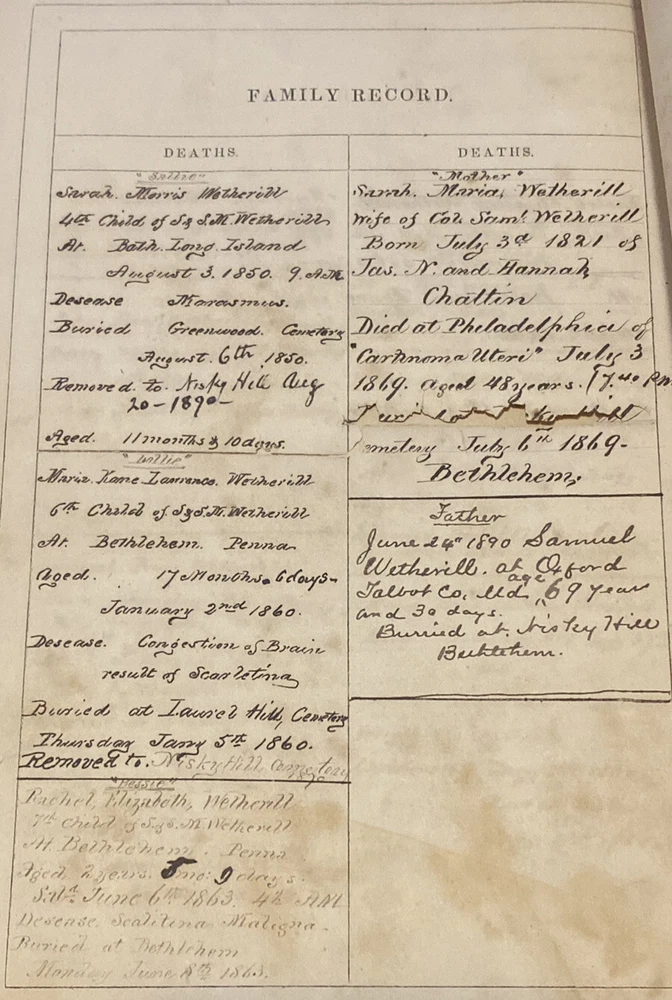 FAMILY RECORD.
DEATHS.
"Sallie"
Sarah. Morris Wetherill
4th Child of S & S.M. Wetherill
At. Bath. Long. Island
August 3. 1850. 9. A.M.
Desease Marasmus.
Buried Greenwood. Cemetery
August. 6th, 1850.
Removed to. Nisky Hill Aug
20-1890-
Aged. 11 months & 10 days.
Maria. Kane Lawrence. Wetherill
6th Child of S & S.M. Wetherill
At. Bethlehem. Penna
Aged. 17 Months & 6 days-
January 2nd 1860.
Desease. Congestion of Brain
result of Scarletina
Buried at Laurel Hill, Cemetery
Thursday Jany 5th 1860.
Removed to. Nisky Hill Cemetery
"Bessie"
Rachel, Elizabeth, Wetherill
7th Child of S. & S. M Wetherill
At Bethlehem. Penna
Aged 2 years. 5 mo: 9 days.
Satd June 6th 1863. 4h AM
Desease Scalitina Maligna.
Buried at Bethlehem
Monday June 8th 1863.
DEATHS.
"Mother"
Sarah. Maria, Wetherill
Wife of Col Saml. Wetherill
Born July 3d 1821 of
Jas. N. and Hannah
Chattin
Died at Philadelphia of
"Carsinoma Uteri" July 3
1869. aged 48 years. (7.40 PM
emetery July 6th 1869-
Bethlehem,
Father
June 24th 1890 Samuel
Wetherill. at Oxford
Talbot Co, Md age 69 year
and 30 days.
Burried at. Nisky Hill
Bethlehem.